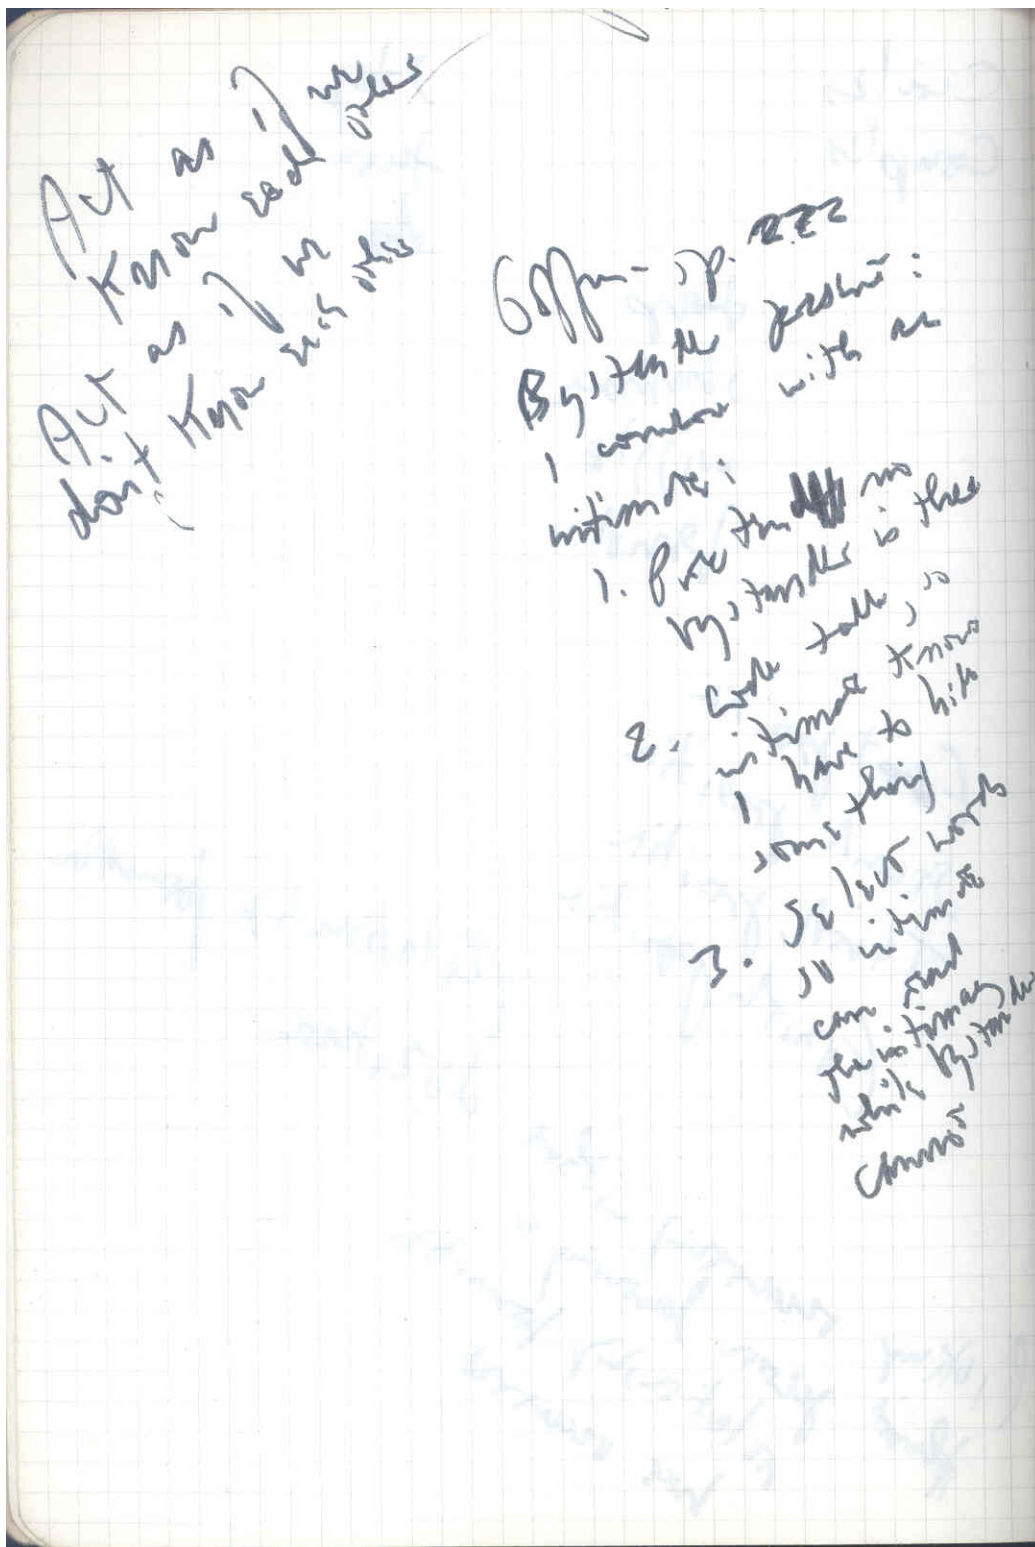 Act as if we
Know each other
Act as if we
don't Know each other
Goffman - p. 222
Bystander present:
I converse with an
intimate:
1. Pretend no
bystander is there
2. Code talk, so
intimate knows
I have to hide
something
3. Select words
so intimate
can read
the intimacy
while bystander
cannot